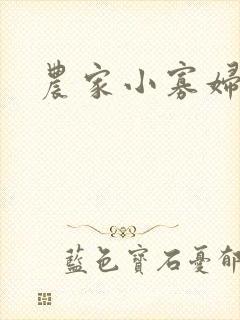 農家小寡婦
藍色寶石憂郁